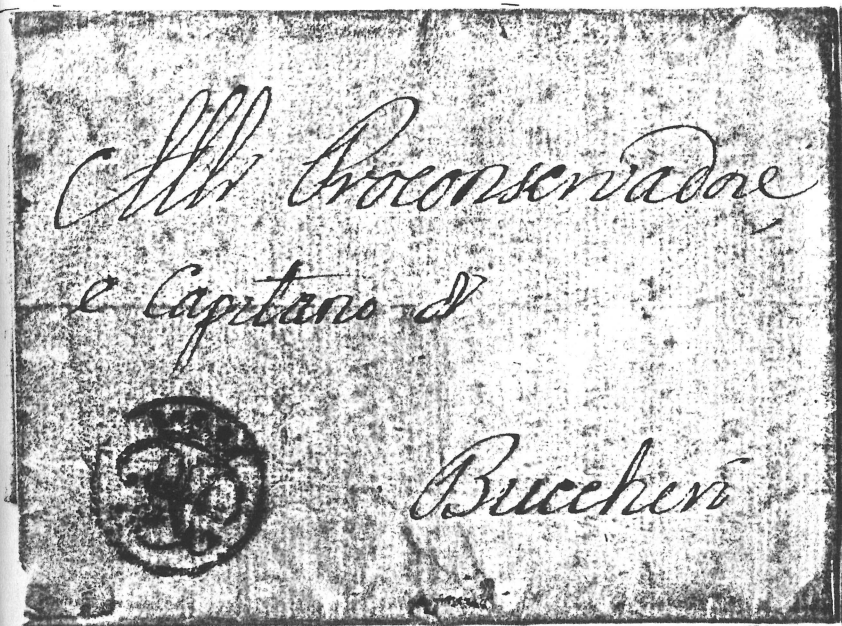 Alli Proconservadore
e Capitano di
Buccheri